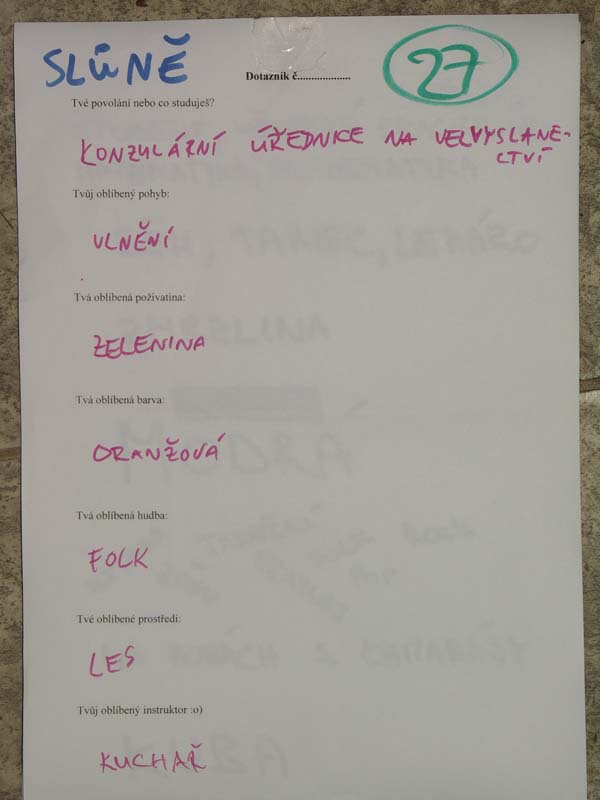 SLŮNĚ
27
Dotazník č...................
Tvé povolání nebo co studuješ?
KONZULÁRNÍ ÚŘEDNICE NA VELVYSLANE-
CTVÍ
Tvůj oblíbený pohyb:
VLNĚNÍ
Tvá oblíbená poživatina:
ZELENINA
Tvá oblíbená barva:
ORANŽOVÁ
Tvá oblíbená hudba:
FOLK
Tvé oblíbené prostředí:
LES
Tvůj oblíbený instruktor :o)
KUCHAŘ